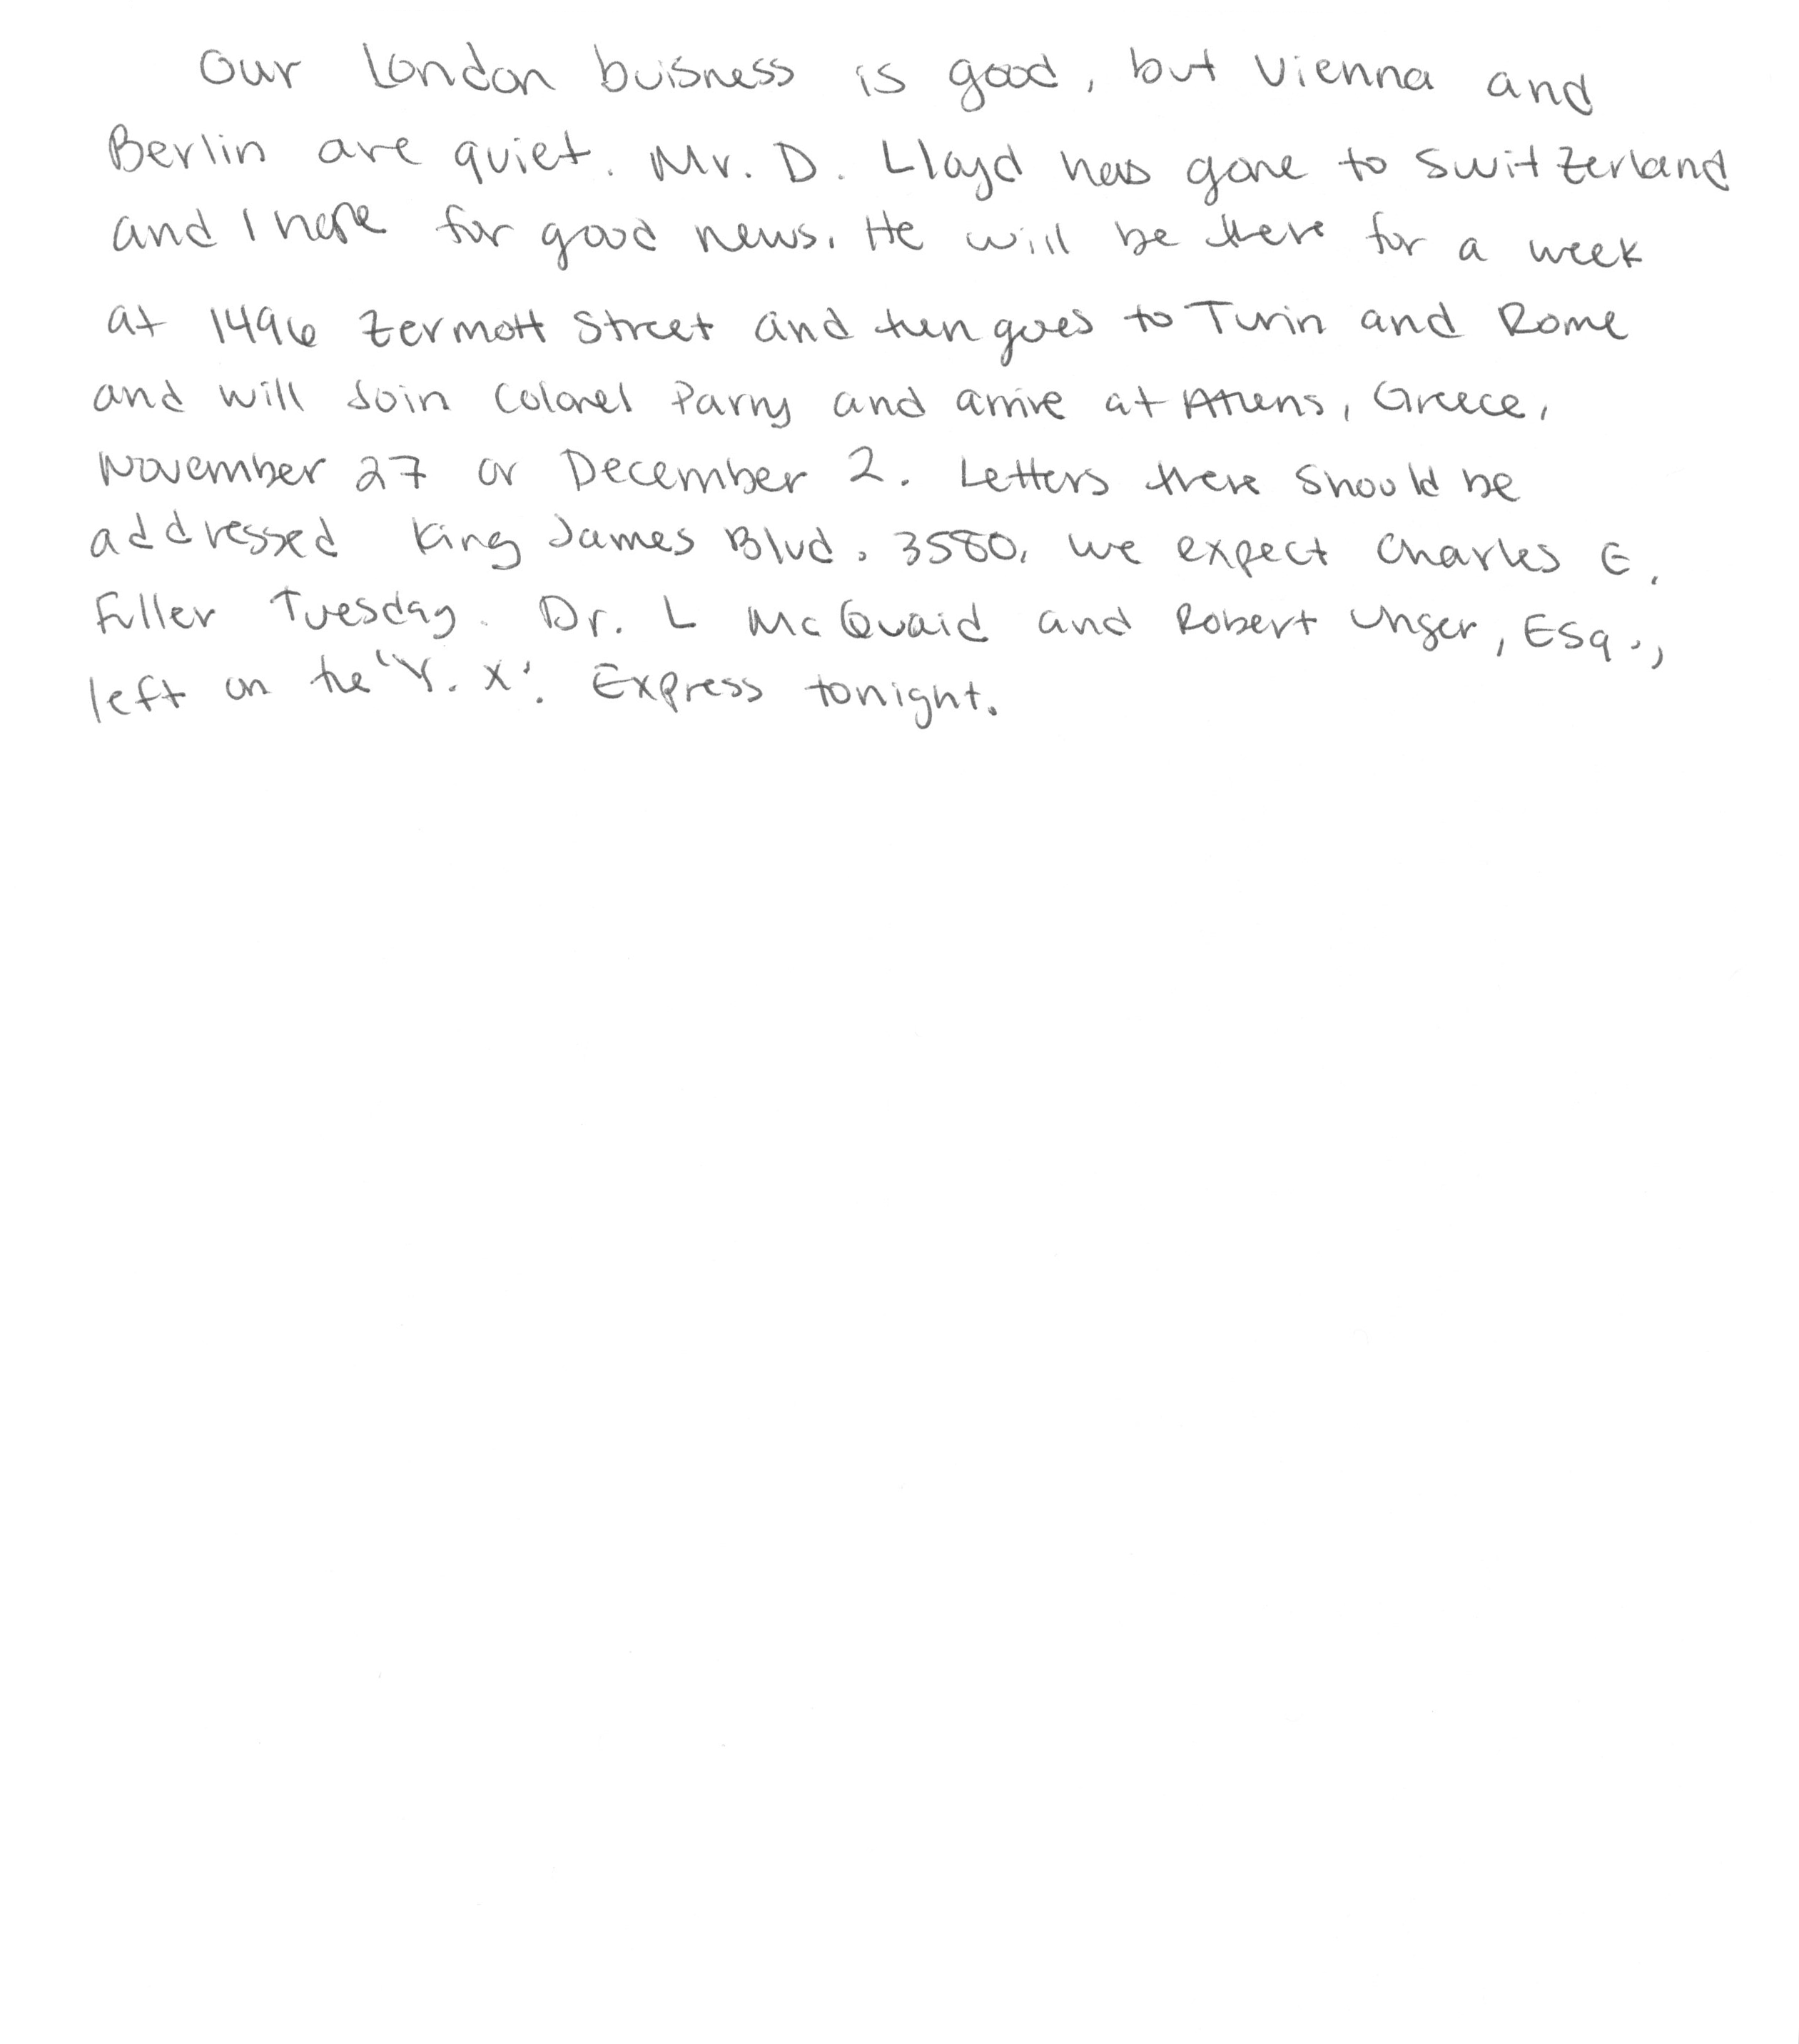 Our London buisness is good, but Vienna and
Berlin are quiet. Mr. D. Lloyd has gone to Switzerland
and I hope for good news. He will be there for a week
at 1496 Zermott Street and then goes to Turin and Rome
and will Join Colonel Parry and arrive at Athens, Greece,
November 27 or December 2. Letters there Should be
addressed King James Blvd. 3580. We expect Charles E.
Fuller Tuesday. Dr. L McQuaid and Robert Unger, Esq.,
left on the 'Y. X'. Express tonight.